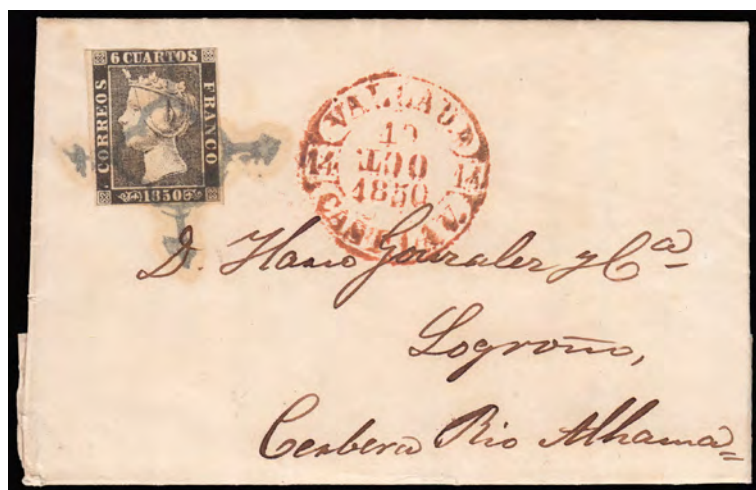 6 CUARTOS
CORREOS
FRANCO
1850
VALLAD.D
14
14
1850
CAST.LA V.
D. Ilario Gonzalez y Cª
Logroño,
Cerbera Rio Alhama